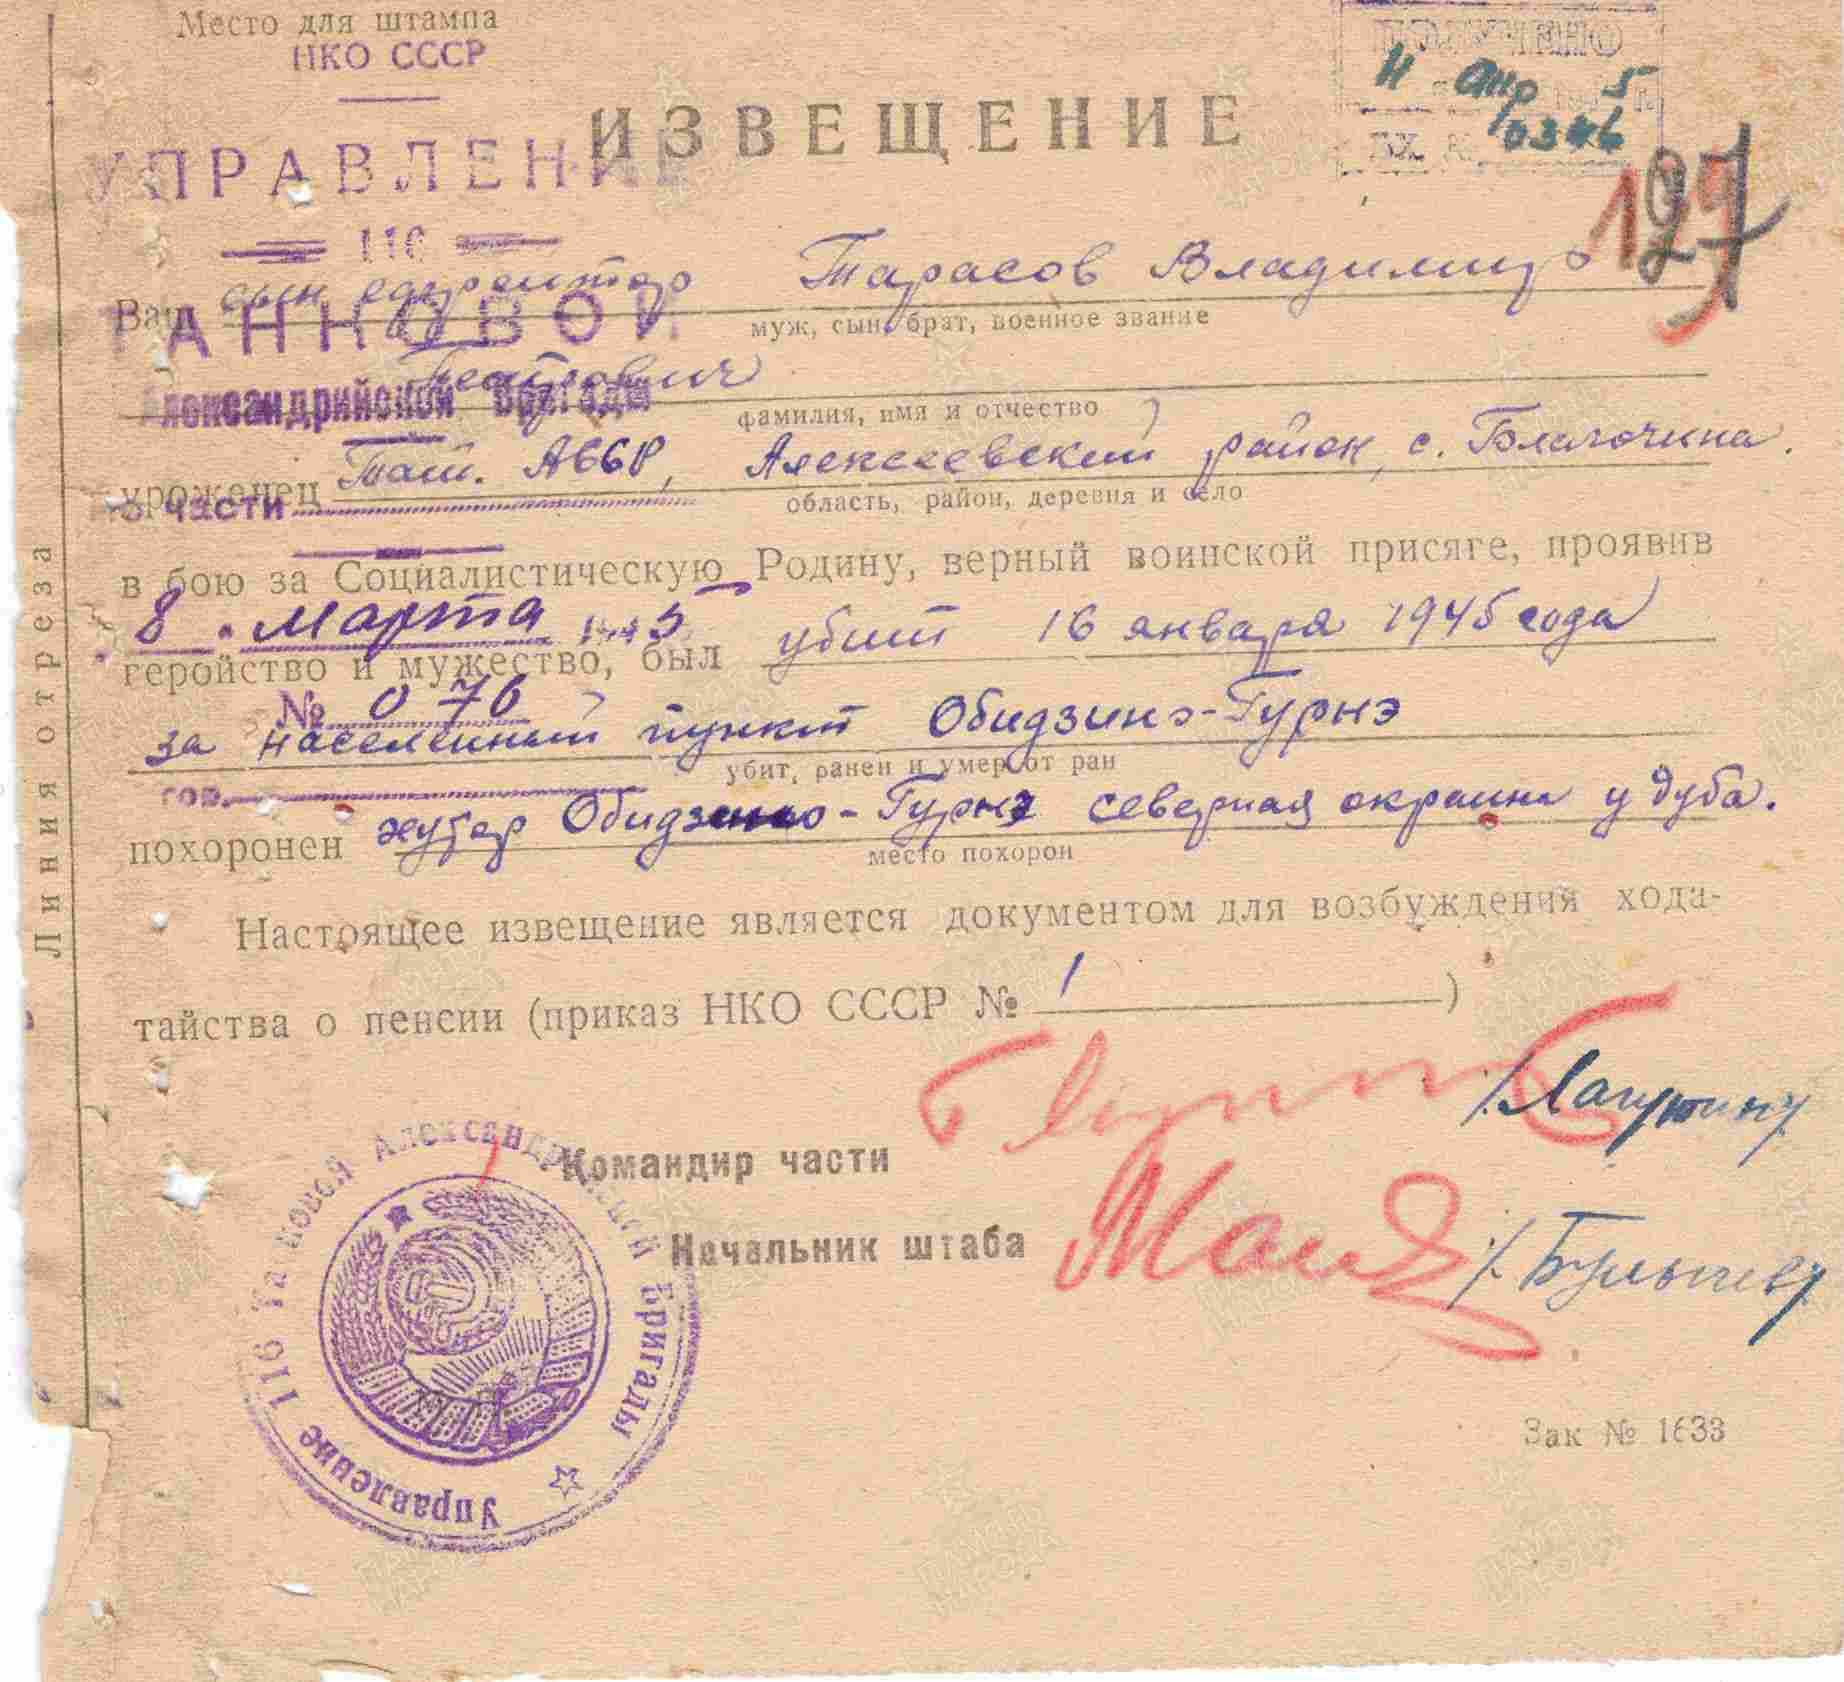 Место для штампа
НКО СССР
ПОЛУЧЕНО
11 апр 5 г.
ВХ. № 10346
ИЗВЕЩЕНИЕ
УПРАВЛЕНИЕ
127
116
Ваш сын ефрейтор Тарасов Владимир
муж, сын, брат, военное звание
ТАНКОВОЙ
фамилия, имя и отчество
Александрийской Бригады
уроженец Тат. АССР, Алексеевский район, с.
область, район, деревня и село
части
в бою за Социалистическую Родину, верный воинской присяге, проявив
8 марта 1945
геройство и мужество, был убит 16 января 1945 года
№ 076
за населенный пункт Обидзинэ-Гурнэ
убит, ранен и умер от ран
гор.
похоронен хутор Обидзинэ-Гурнэ северная окраина у дуба.
место похорон
Настоящее извещение является документом для возбуждения хода-
тайства о пенсии (приказ НКО СССР № 1 )
Командир части /Лапутин/
Начальник штаба /Булычев/
Управление 116 Танковой Александрийской Бригады
Зак № 1633
Линия отреза
ПАМЯТЬ НАРОДА